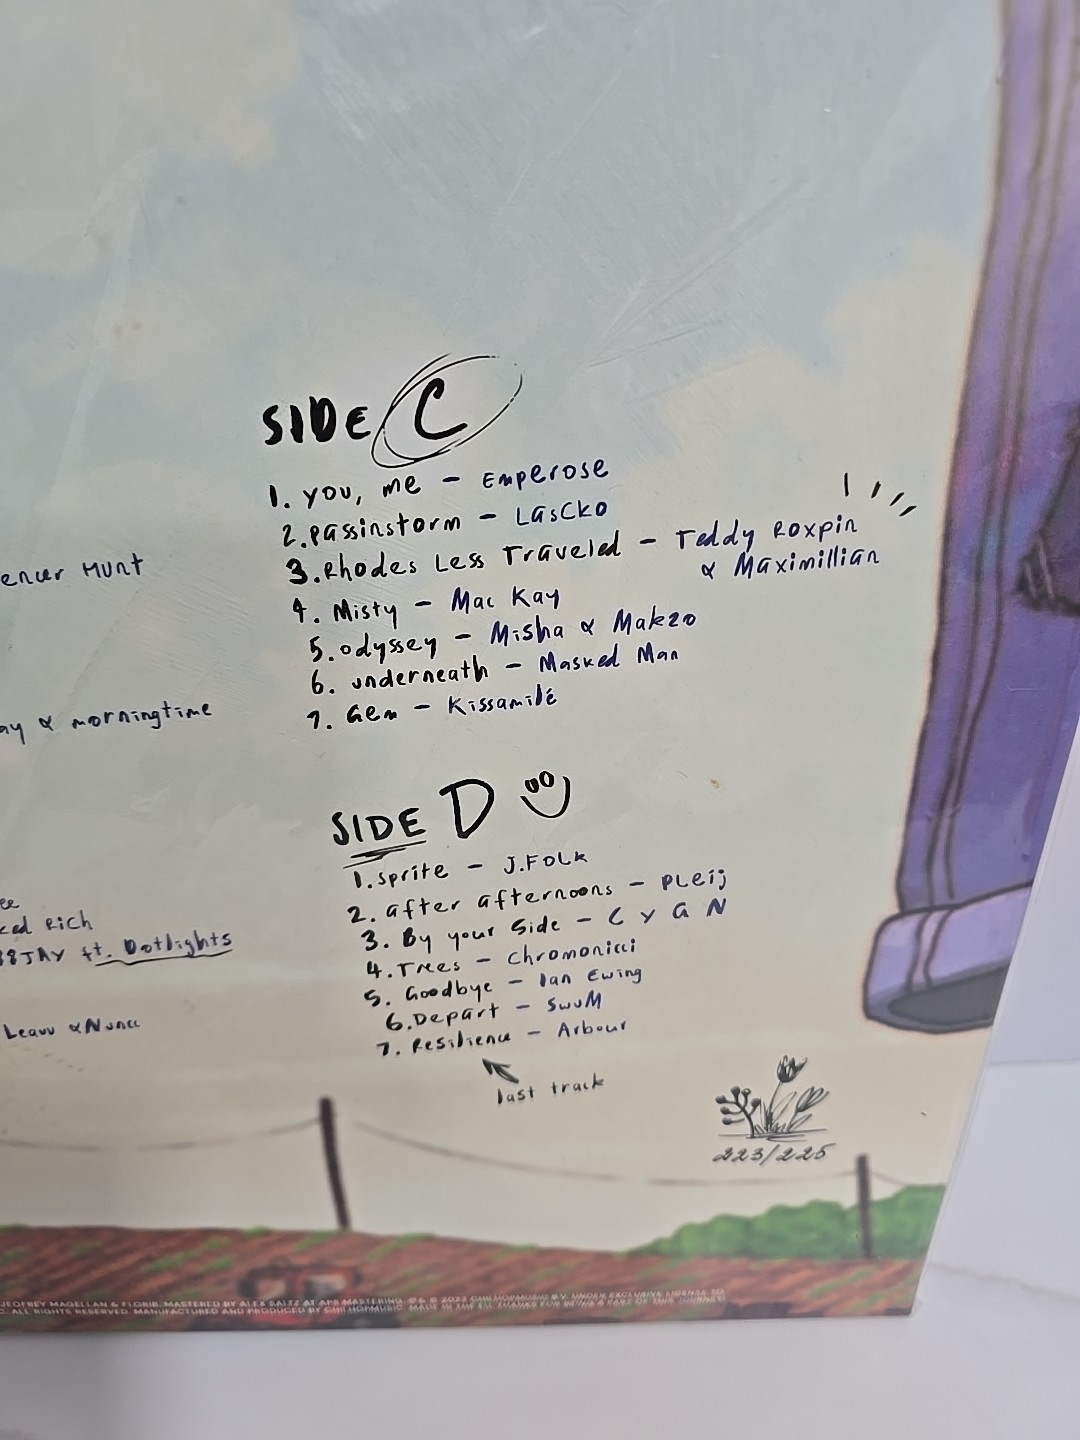 SIDE C
1. you, me - Emperose
2. passinstorm - LAsCKo
3. Rhodes Less Traveled - Teddy Roxpin
& Maximillian
4. Misty - Mac Kay
5. odyssey - Misha & Makzo
6. underneath - Masked Man
7. Gem - Kissamilé
Hunt
& morningtime
SIDE D
1. sprite - J.FOLK
2. after afternoons - PLeij
3. By your Side - C Y G N
4. Trees - Chromonicci
5. Goodbye - Ian Ewing
6. Depart - SwuM
7. Resilience - Arbour
last track
Rich
ft. Dotlights
Leavv & Nuncc
223/225
MAGELLAN & FLORIB. MASTERED BY ALEX SALTZ AT APS MASTERING. ℗& © 2022 CHILLHOPMUSIC B.V. UNDER EXCLUSIVE LICENSE TO
ALL RIGHTS RESERVED. MANUFACTURED AND PRODUCED BY CHILLHOPMUSIC. MADE IN THE EU. THANKS FOR BEING A PART OF THIS JOURNEY!